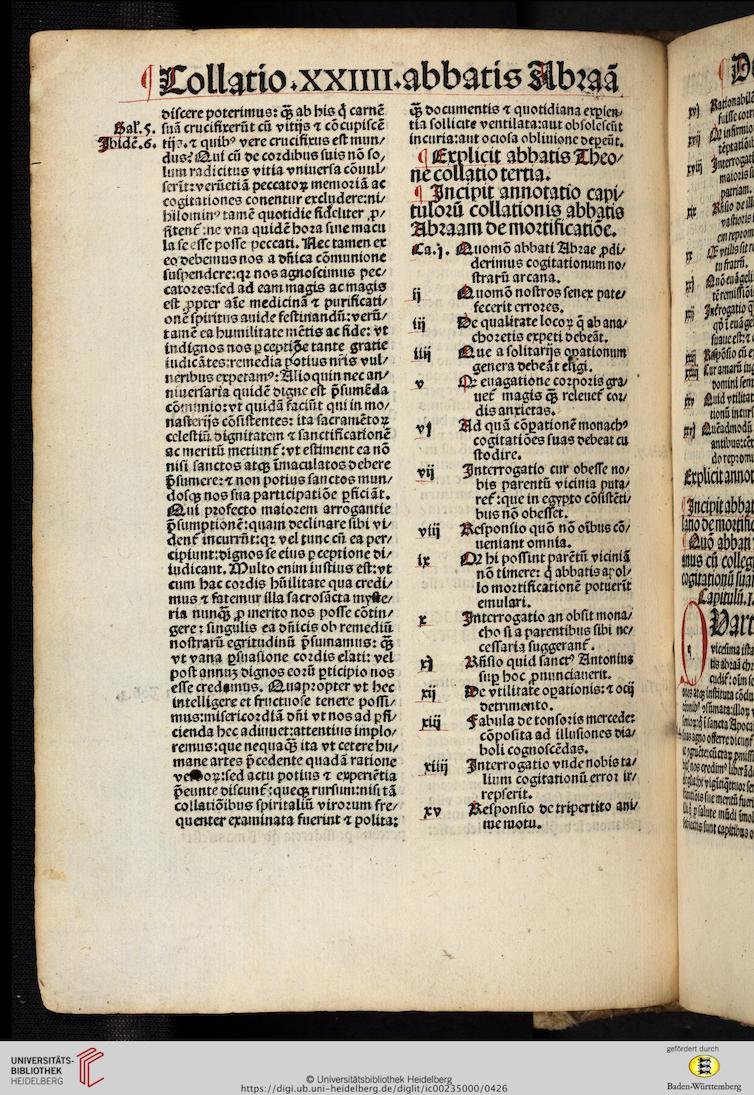 ¶ Collatio .XXIIII. abbatis Abraā
Gal'. 5.
Ibidē. 6.
discere poterimus: q̄ȝ ab his q̇ carnē
suā crucifixerūt cū vitijs ⁊ cōcupiscē
tijs. ⁊ quibꝰ vere crucifixus est mun/
dus? Qui cū de cordibus suis nō so/
lum radicitus vitia vniuersa cōuul/
serūt: verūetiā peccatoꝝ memoriā ac
cogitationes conentur excludere: ni/
hilominꝰ tamē quotidie fideliter ꝓ/
fitent᷑: ne vna quidē hora sine macu
la se esse posse peccati. Nec tamen ex
eo debemus nos a dn̄ica cōmunione
suspendere: qꝛ nos agnoscimus pec/
catores: sed ad eam magis ac magis
est ꝓpter aīe medicinā ⁊ purificati/
onē spiritus auide festinandū: verū/
tamē ea humilitate mētis ac fide: vt
indignos nos ꝑceptiōe tante gratie
iudicātes: remedia potius nr̄is vul/
neribus expetamꝰ: Alioquin nec an/
niuersaria quidē digne est p̄sumēda
cōmunio: vt quidā faciūt qui in mo/
nasterijs cōsistentes: ita sacramētoꝝ
celestiū dignitatem ⁊ sanctificationē
ac meritū metiunt᷑: vt estiment ea nō
nisi sanctos atqȝ īmaculatos debere
p̄sumere: ⁊ non potius sanctos mun/
dosqȝ nos sua participatiōe ꝑficiāt.
Qui profecto maiorem arrogantie
p̄sumptionē: quam declinare sibi vi/
dent᷑ incurrūt: qꝛ vel tunc cū ea per/
cipiunt: dignos se eius ꝑceptione di/
iudicant. Multo enim iustius est: vt
cum hac cordis hūilitate qua credi/
mus ⁊ fatemur illa sacrosācta myste/
ria nunq̄ȝ ꝓ merito nos posse cōtin/
gere: singulis ea dn̄icis ob remediū
nostrarū egritudinū p̄sumamus: q̄ȝ
vt vana ꝑsuasione cordis elati: vel
post annuȝ dignos eorū ꝑticipio nos
esse credamus. Quapropter vt hec
intelligere et fructuose tenere possi/
mus: misericordiā dn̄i vt nos ad ꝑfi/
cienda hec adiuuet: attentius implo/
remus: que nequaq̄ȝ ita vt cetere hu/
mane artes p̄cedente quadā ratione
sed actu potius ⁊ experiētia
p̄eunte discunt᷑: queqȝ rursum: nisi tā
collatiōibus spiritaliū virorum fre/
quenter examinata fuerint ⁊ polita:
q̄ȝ documentis ⁊ quotidiana experien/
tia sollicite ventilata: aut obsolescūt
incuria: aut ociosa obliuione depeūt.
¶ Explicit abbatis Theo/
ne collatio tertia.
¶ Incipit annotatio capi/
tulorū collationis abbatis
Abraam de mortificatiōe.
Ca. j. Quomō abbati Abrae ꝓdi/
derimus cogitationum no/
strarū arcana.
ij Quomō nostros senex pate/
fecerit errores.
iij De qualitate locoꝝ q̇ ab ana/
choretis expeti debeāt.
iiij Que a solitarijs oꝑationum
genera debeāt eligi.
v Qꝛ euagatione corporis gra/
uet᷑ magis q̄ȝ releuet᷑ cor/
dis anxietas.
vj Ad quā cōpationē monachꝰ
cogitatiōes suas debeat cu
stodire.
vij Interrogatio cur obesse no/
bis parentū vicinia puta/
ret᷑: que in egypto cōsistēti/
bus nō obesset.
viij Responsio quō nō oībus cō/
ueniant omnia.
ix Qꝛ hi possunt parētū viciniā
nō timere: q̇ abbatis apol/
lo mortificationē potuerīt
emulari.
x Interrogatio an obsit mona/
cho si a parentibus sibi ne/
cessaria suggerant᷑.
xj Rn̄sio quid sanctꝰ Antonius
suꝑ hoc ꝓnunciauerit.
xij De vtilitate oꝑationis: ⁊ ocij
detrimento.
xiij Fabula de tonsoris mercede:
cōposita ad illusiones dia/
boli cognoscēdas.
xiiij Interrogatio vnde nobis ta/
lium cogitationū error ir/
repserit.
xv Responsio de tripertito ani/
me motu.
UNIVERSITÄTS-
BIBLIOTHEK
HEIDELBERG
© Universitätsbibliothek Heidelberg
https://digi.ub.uni-heidelberg.de/diglit/ic00235000/0426
gefördert durch
Baden-Württemberg